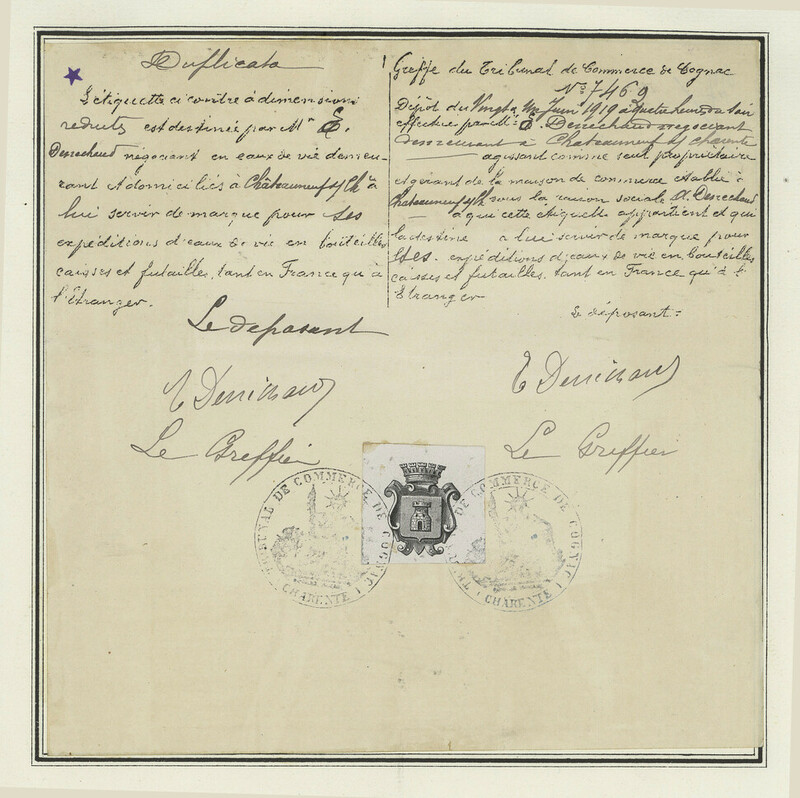 Duplicata
L'étiquette ci contre à dimensions
réduites est destinée par Mr E.
Denéchaud négociant en eaux de vie demeu-
rant et domiciliés à Chateauneuf s/Ch à
lui servir de marque pour ses
expéditions d'eaux de vie en bouteilles
caisses et futailles, tant en France qu'à
l'étranger.
Le déposant
E Denéchaud
Le Greffier
Greffe du Tribunal de Commerce de Cognac
No 7469
Dépôt du Vingt Juin 1919 à quatre heures du soir
effectué par Mr E. Denéchaud négociant
demeurant à Chateauneuf s/ Charente
agissant comme seul propriétaire
et gérant de la maison de commerce établie à
Chateauneuf s/Ch sous la raison sociale Denéchaud
à qui cette étiquette appartient et qui
la destine à lui servir de marque pour
ses expéditions d'eaux de vie en bouteilles
caisses et futailles, tant en France qu'à l'
Etranger
Le déposant =
E Denéchaud
Le Greffier
TRIBUNAL DE COMMERCE DE COGNAC
CHARENTE
TRIBUNAL DE COMMERCE DE COGNAC
CHARENTE